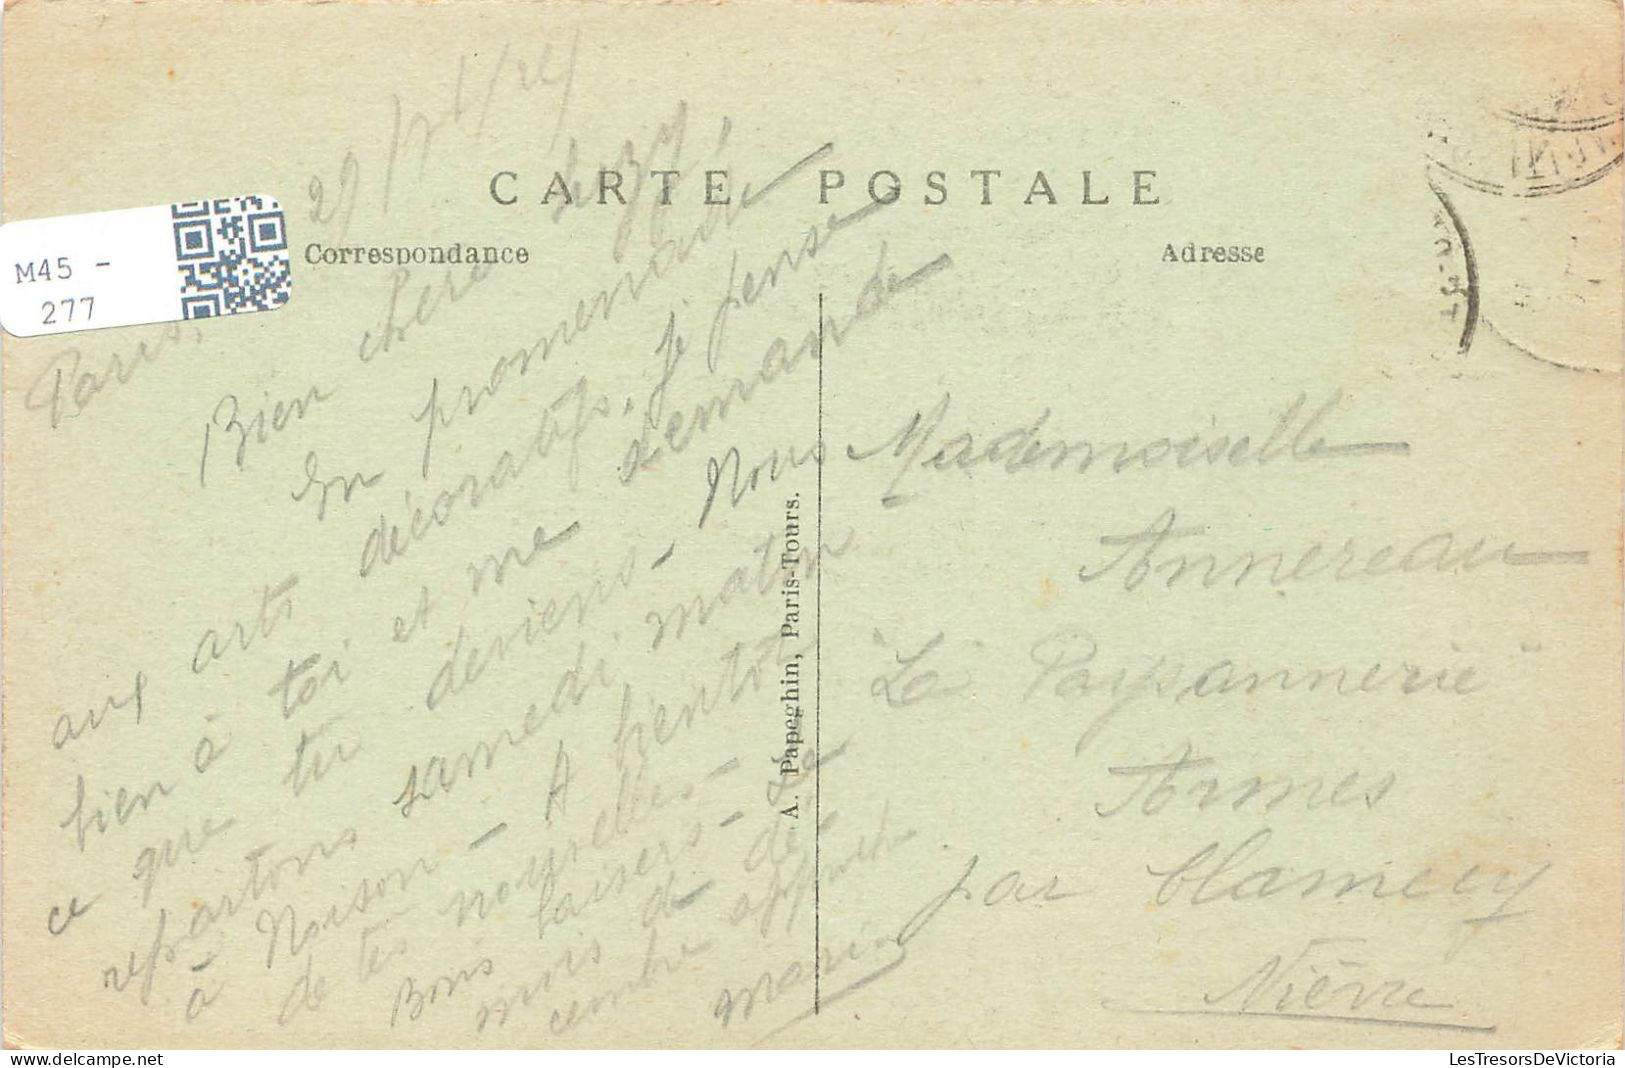 CARTE POSTALE
Correspondance
Adresse
M45 -
277
Paris,
Bien chère Suzy,
En promenade
aux arts décoratifs. Je pense
bien à toi et me demande
ce que tu deviens - Nous
repartons samedi matin
à Noison - A bientôt
de tes nouvelles -
Bons baisers - Le
mois de dé-
cembre approche
Marie
A. Papeghin, Paris-Tours.
Mademoiselle
Annereau
"La Paysannerie"
Armes
par Clamecy
Nièvre
LesTresorsDeVictoria